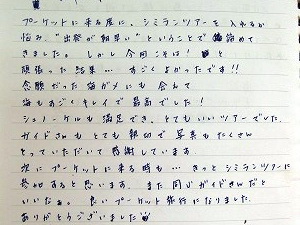 プーケットに来る度に、シミランツアーを入れるか
悩み、"出発が朝早い"ということで諦めて
きました。しかし今回こそは!と
頑張った結果… すごくよかったです!!
念願だった海ガメにも会えて
海もすごくキレイで最高でした!
シュノーケルも満足でき、とてもいいツアーでした。
ガイドさんもとても親切で写真もたくさん
とっていただいて感謝しています。
次にプーケットに来る時も… きっとシミランツアーに
参加すると思います。また同じガイドさんだと
いいなぁ。良いプーケット旅行になりました。
ありがとうございました